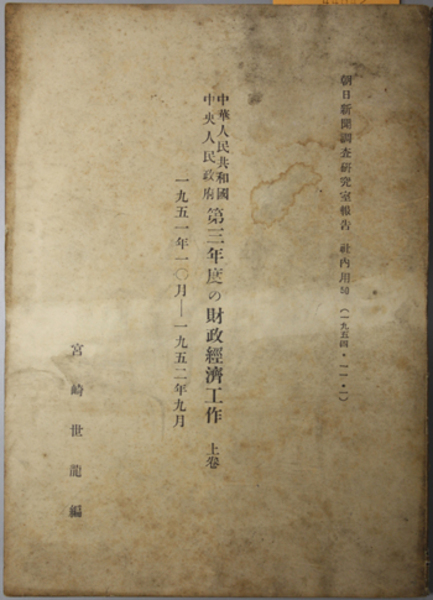 朝日新聞調査研究室報告 社内用50 (一九五四・一一・一)
中華人民共和國
中央人民政府
第三年度の財政經濟工作 上卷
一九五一年一〇月―一九五二年九月
宮崎世龍編